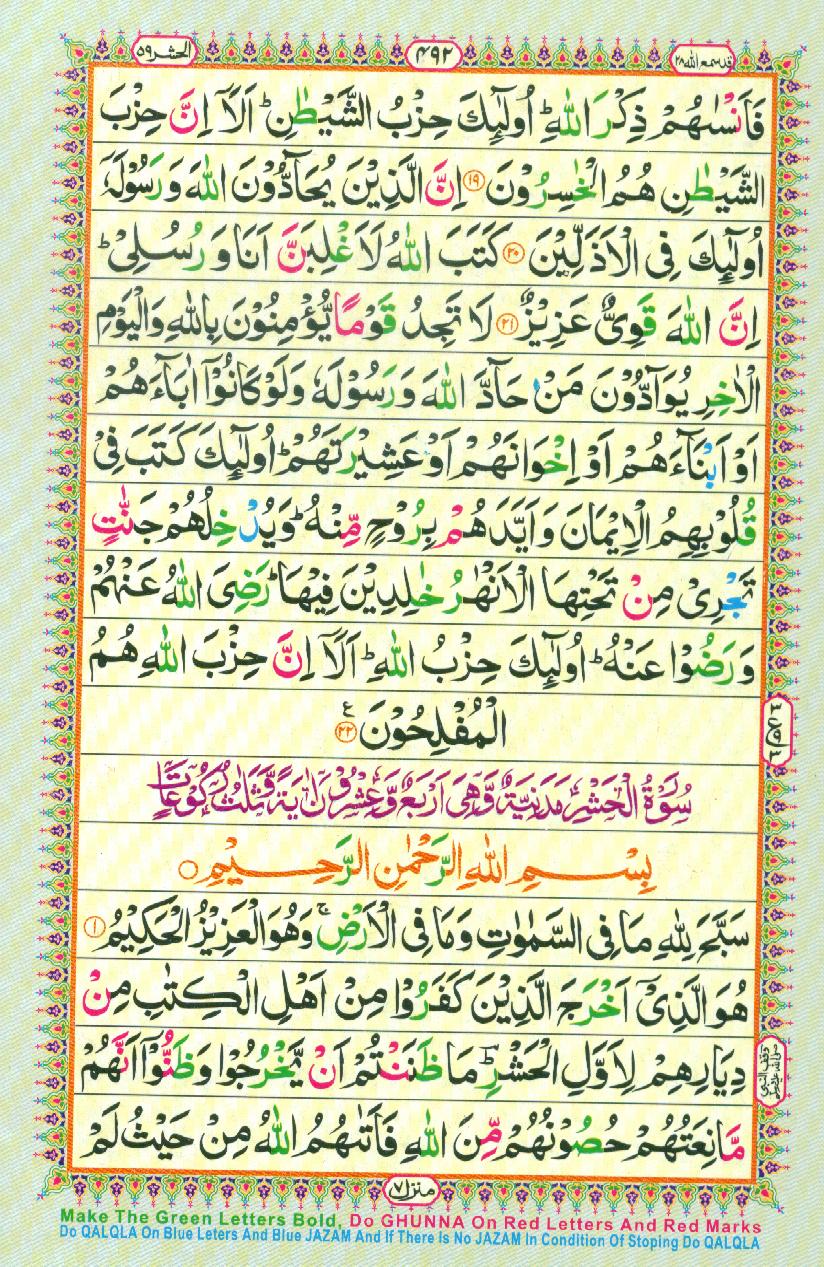 قدسمع الله ۲۸
۴۹۲
الحشر ۵۹
فَاَنْسٰىهُمْ ذِكْرَ اللّٰهِ ؕ اُولٰٓئِكَ حِزْبُ الشَّيْطٰنِ ؕ اَلَاۤ اِنَّ حِزْبَ
الشَّيْطٰنِ هُمُ الْخٰسِرُوْنَ ۱۹ اِنَّ الَّذِيْنَ يُحَآدُّوْنَ اللّٰهَ وَ رَسُوْلَهٗۤ
اُولٰٓئِكَ فِى الْاَذَلِّيْنَ ۲۰ كَتَبَ اللّٰهُ لَاَغْلِبَنَّ اَنَا وَ رُسُلِىْ ؕ
اِنَّ اللّٰهَ قَوِىٌّ عَزِيْزٌ ۲۱ لَا تَجِدُ قَوْمًا يُّؤْمِنُوْنَ بِاللّٰهِ وَالْيَوْمِ
الْاٰخِرِ يُوَآدُّوْنَ مَنْ حَآدَّ اللّٰهَ وَ رَسُوْلَهٗ وَلَوْ كَانُوْۤا اٰبَآءَهُمْ
اَوْ اَبْنَآءَهُمْ اَوْ اِخْوَانَهُمْ اَوْ عَشِيْرَتَهُمْ ؕ اُولٰٓئِكَ كَتَبَ فِىْ
قُلُوْبِهِمُ الْاِيْمَانَ وَ اَيَّدَهُمْ بِرُوْحٍ مِّنْهُ ؕ وَيُدْخِلُهُمْ جَنّٰتٍ
تَجْرِىْ مِنْ تَحْتِهَا الْاَنْهٰرُ خٰلِدِيْنَ فِيْهَا ؕ رَضِىَ اللّٰهُ عَنْهُمْ
وَ رَضُوْا عَنْهُ ؕ اُولٰٓئِكَ حِزْبُ اللّٰهِ ؕ اَلَاۤ اِنَّ حِزْبَ اللّٰهِ هُمُ
الْمُفْلِحُوْنَ ۲۲ ع
سُوْرَةُ الْحَشْرِ مَدَنِيَّةٌ وَّهِىَ اَرْبَعٌ وَّعِشْرُوْنَ اٰيَةً وَّثَلٰثُ رُكُوْعَاتٍ
بِسْمِ اللّٰهِ الرَّحْمٰنِ الرَّحِيْمِ
سَبَّحَ لِلّٰهِ مَا فِى السَّمٰوٰتِ وَمَا فِى الْاَرْضِ ۚ وَهُوَ الْعَزِيْزُ الْحَكِيْمُ ۱
هُوَ الَّذِىْۤ اَخْرَجَ الَّذِيْنَ كَفَرُوْا مِنْ اَهْلِ الْكِتٰبِ مِنْ
دِيَارِهِمْ لِاَوَّلِ الْحَشْرِ ؕ مَا ظَنَنْتُمْ اَنْ يَّخْرُجُوْا وَظَنُّوْۤا اَنَّهُمْ
مَّانِعَتُهُمْ حُصُوْنُهُمْ مِّنَ اللّٰهِ فَاَتٰىهُمُ اللّٰهُ مِنْ حَيْثُ لَمْ
منزل ۷
Make The Green Letters Bold, Do GHUNNA On Red Letters And Red Marks
Do QALQLA On Blue Leters And Blue JAZAM And If There Is No JAZAM In Condition Of Stoping Do QALQLA